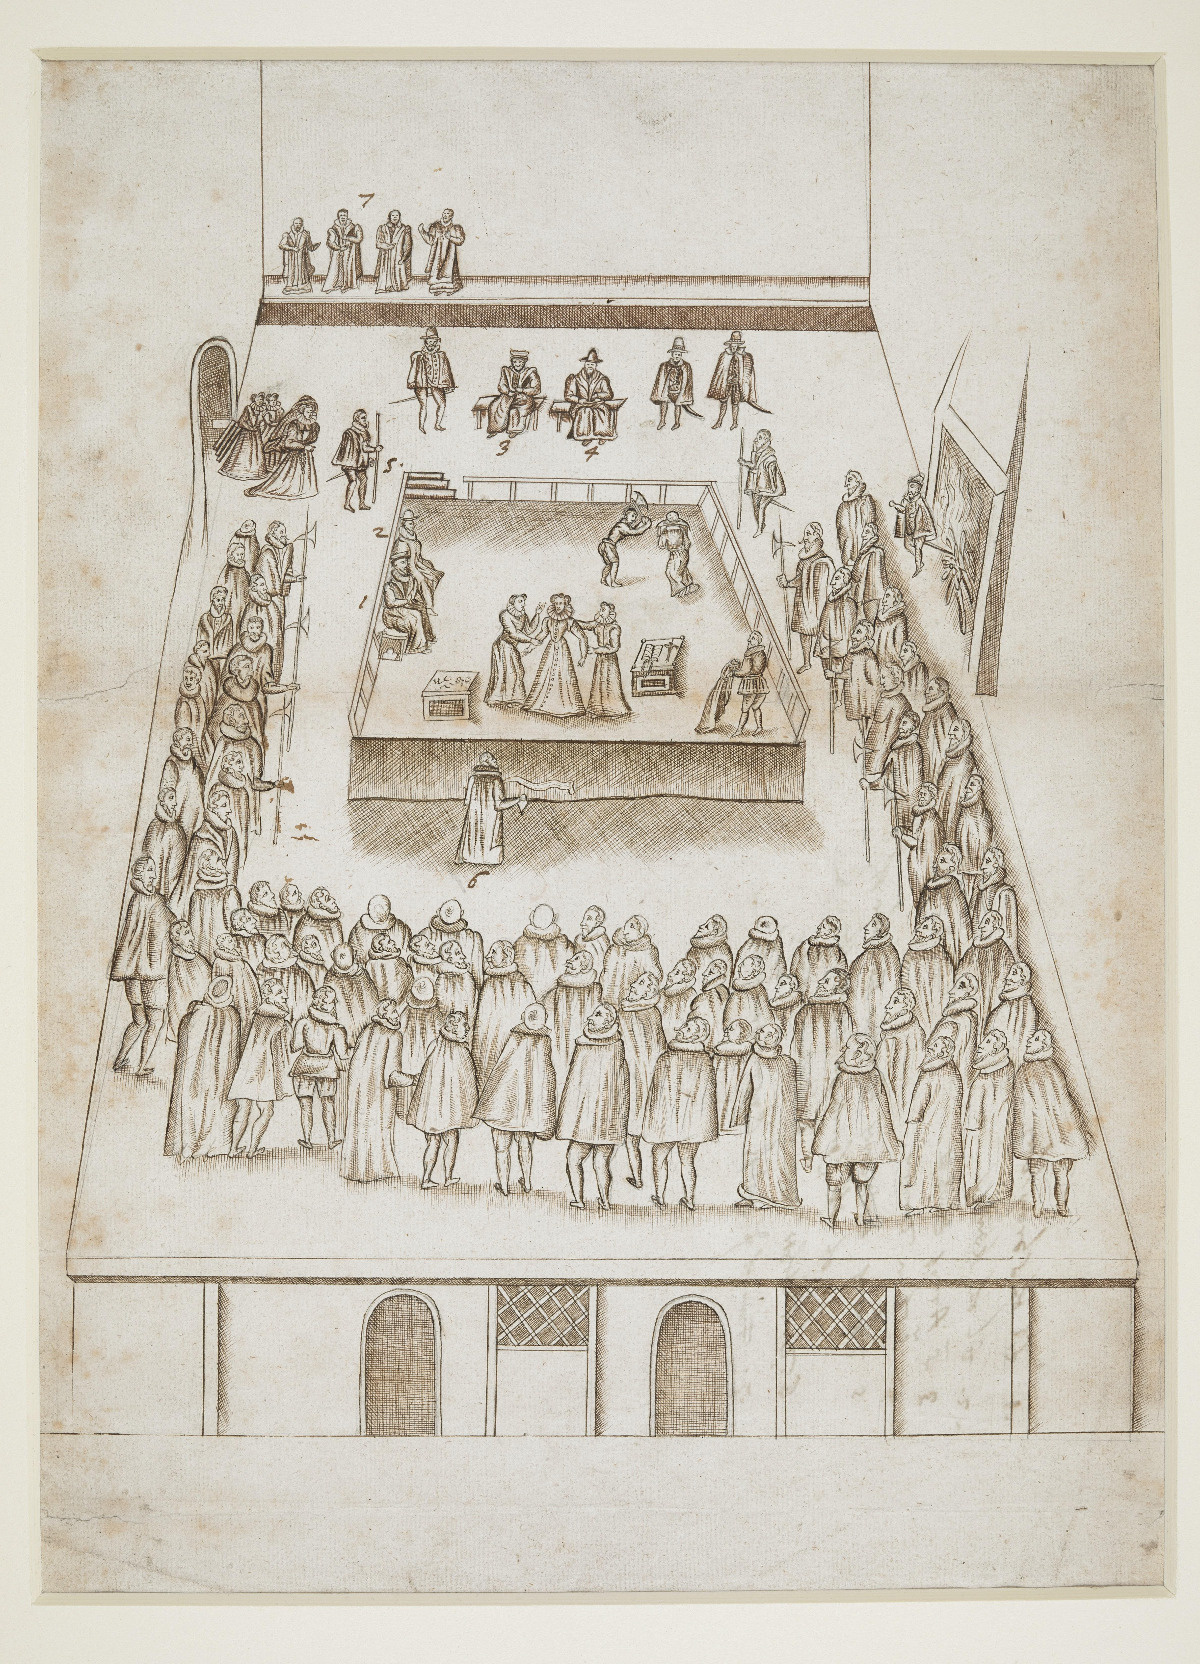 7
3
4
5.
2
1
6